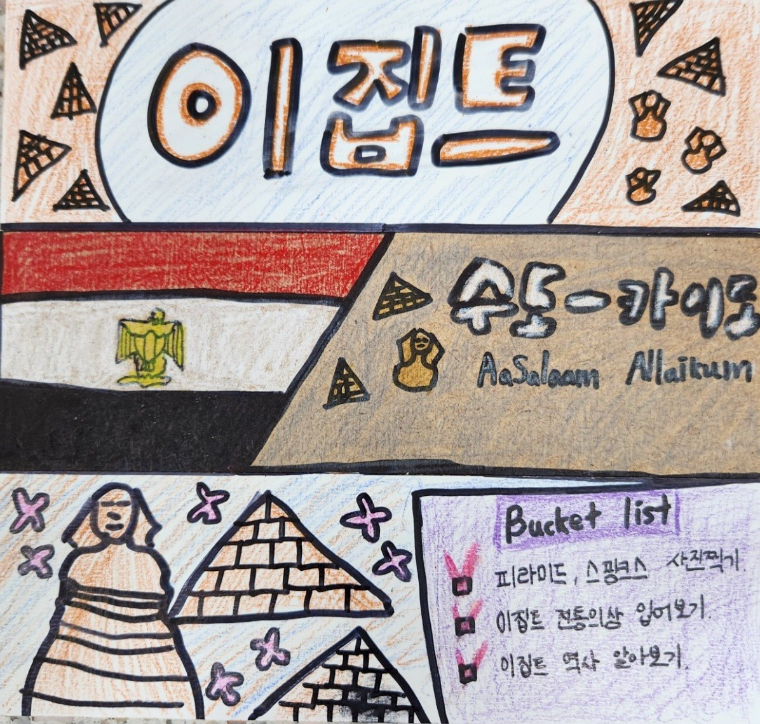 이집트
수도-카이로
AaSalaam Allaikum
Bucket list
피라미드, 스핑크스 사진찍기
이집트 전통의상 입어보기.
이집트 역사 알아보기.